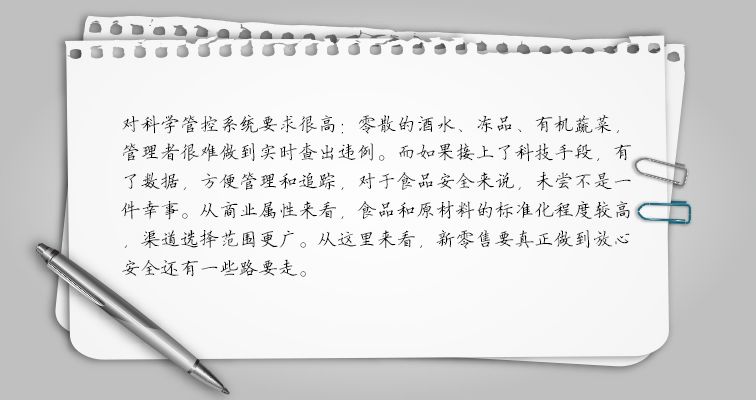 对科学管控系统要求很高：零散的酒水、冻品、有机蔬菜，
管理者很难做到实时查出违例。而如果接上了科技手段，有
了数据，方便管理和追踪，对于食品安全来说，未尝不是一
件幸事。从商业属性来看，食品和原材料的标准化程度较高
，渠道选择范围更广。从这里来看，新零售要真正做到放心
安全还有一些路要走。